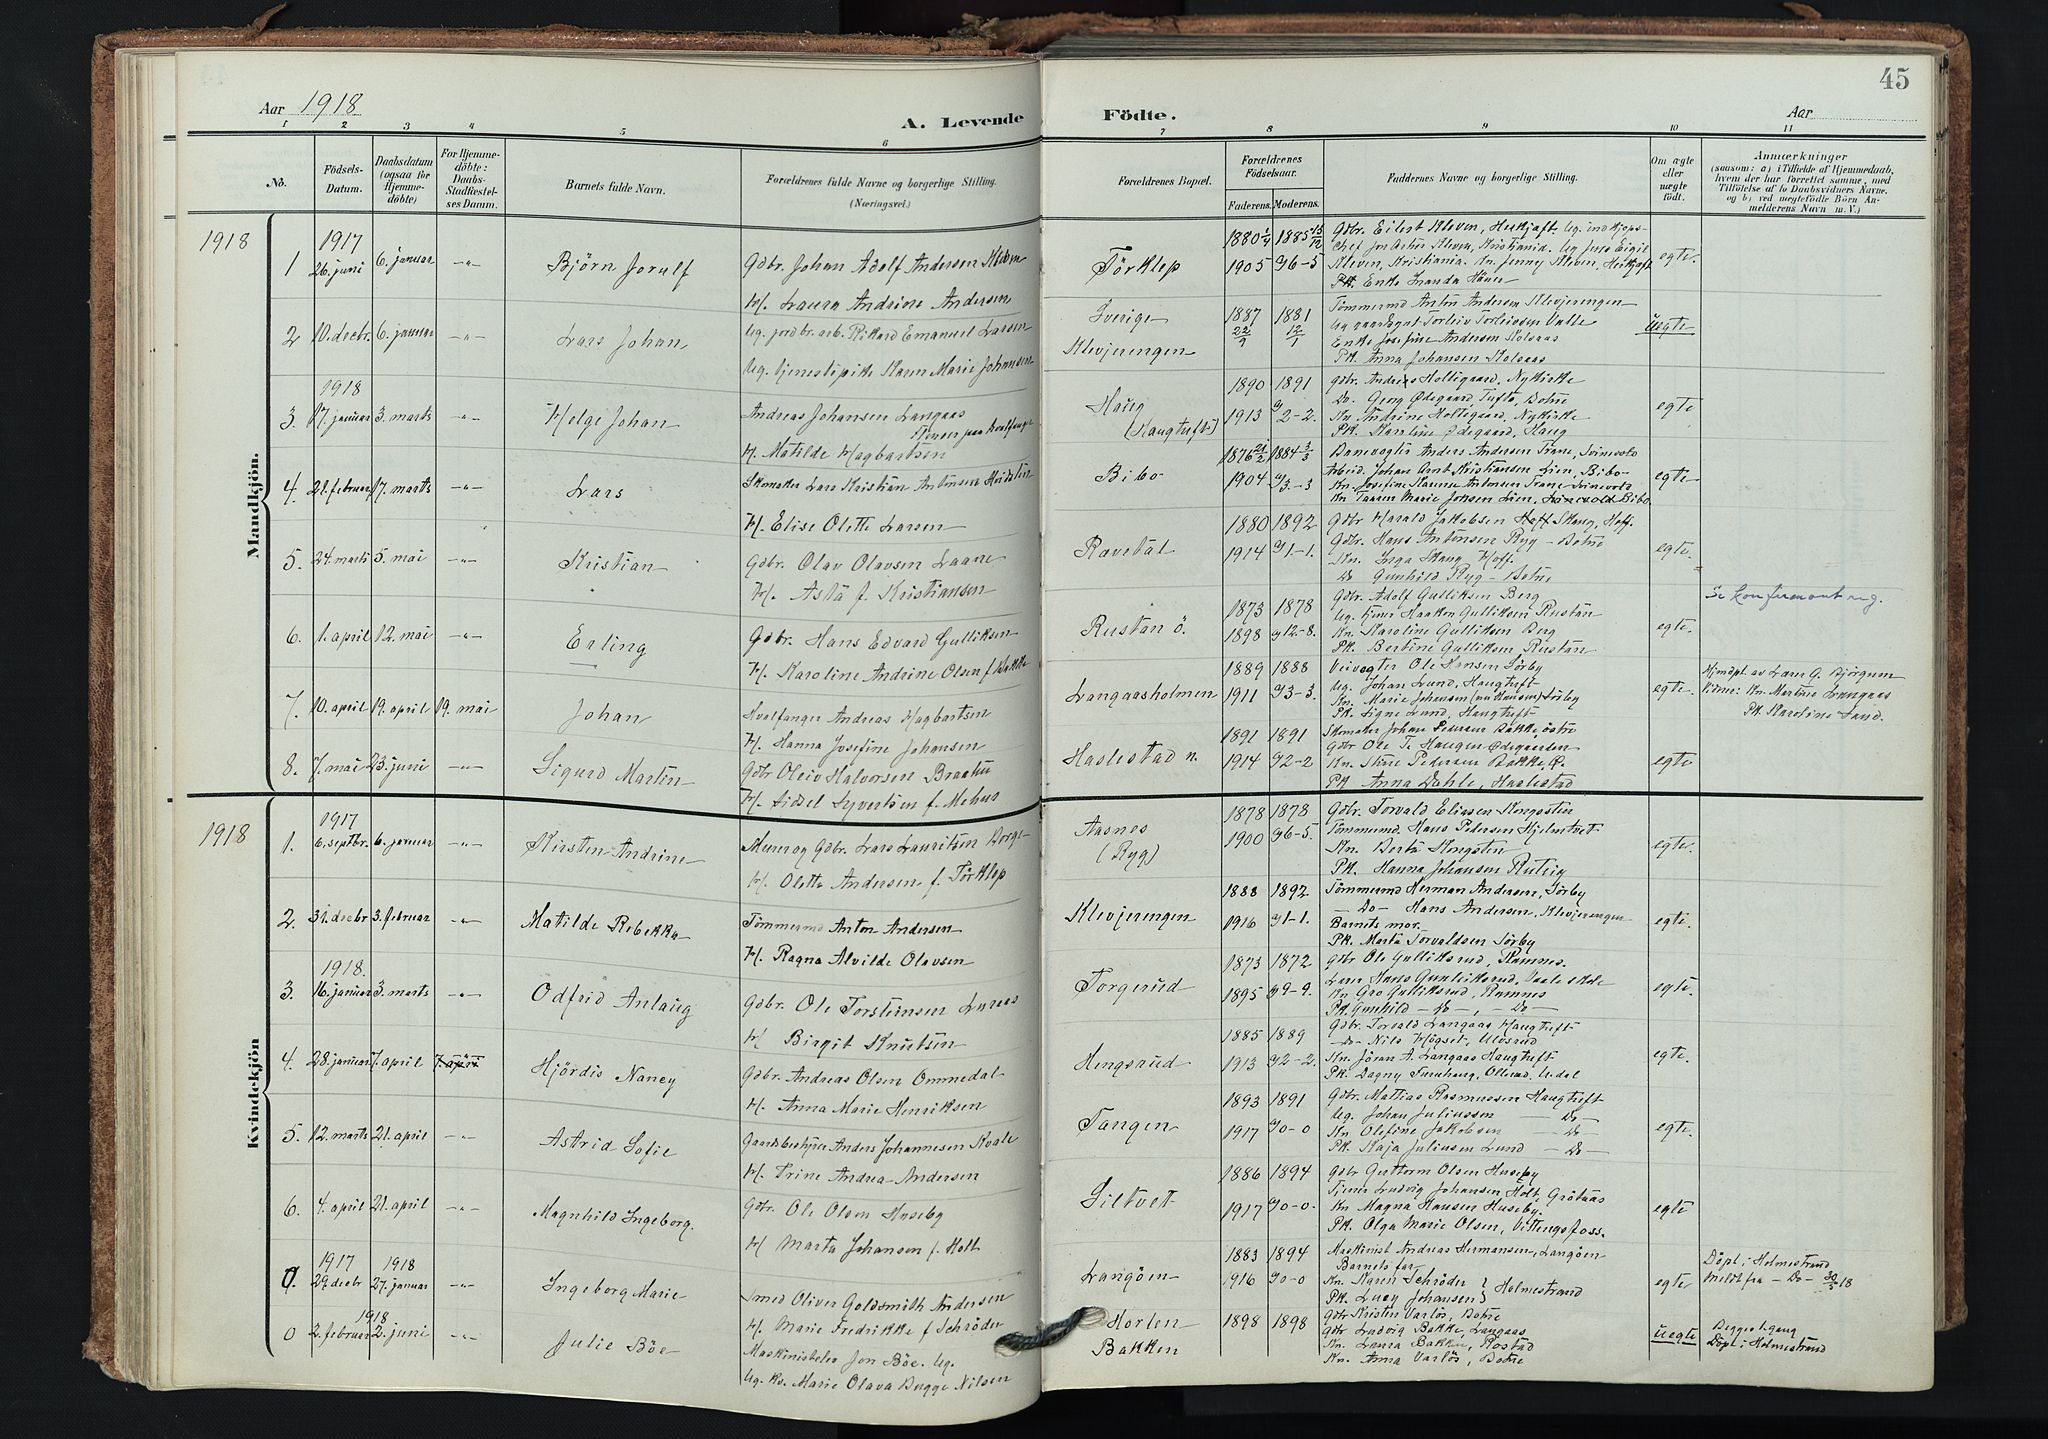 45
Aar 1918 A. Levende Födte. Aar
1 2 3 4 5 6 7 8 9 10 11
No. Födsels-Datum. Daabsdatum (ogsaa for Hjemme-döbte) For Hjemme-döbte: Daabs-Stadfæstel-ses Datum. Barnets fulde Navn. Forældrenes fulde Navne og borgerlige Stilling. (Næringsvei.) Forældrenes Bopæl. Forældrenes Födselsaar. Faderens. Moderens. Faddernes Navne og borgerlige Stilling. Om ægte eller uægte födt. Anmærkninger (saasom: a) i Tilfælde af Hjemmedaab, hvem der har forrettet samme, med Tilföielse af to Daabsvidners Navne, og b) ved uægtefödte Börn An-melderens Navn m. V.)
Mandkjön.
1918
1917
1 26. juni 6. januar -"- Björn Jorulf Gdbr. Johan Adolf Andersen
H. Laura Andrine Andersen
Törklep 1880 1885
1905 6-5
Gdbr. Eilert Kleven,
Kleven, Kristiania. Kn. Jenny Kleven,
Pk. Enke
egte.
2 10. decbr. 6. januar -"- Lars Johan Ug. jordbr. arb. Rikard Emanuel Larsen
Ug. tjenestepike Karen Marie Johansen
Sverige
Klevjerengen
1887 1881
22/9 12/1
Tömmermd Anton Andersen Klevjerengen
Torleiv Torleivsen Valle
Enke Josefine Andersen Holsaas
Pk. Anna Johansen Holsaas
Uegte
1918
3. 17. januar 3. marts -"- Helge Johan Andreas Johansen Langaas
H. Matilde Hagbartsen
Haug
(Haugtuft)
1890 1891
1913 2-2.
Gdbr. Andreas Holtegaard, Nykirke
Do. Georg Ødegaard Tufte, Botne
Kn. Andrine Holtegaard, Nykirke
Pk. Karoline Ødegaard, Haug
egte
4. 21. februar 17. marts -"- Lars Skomaker Lars Kristian Antonsen
H. Elise Olette Larsen
Bibo 1876 21/2 1884 3/3
1904 3-3
Banevogter Anders Andersen Trane,
Arbeid. Johan Arnt Kristiansen Lien, Bibo
Kn. Josefine
Kn. Taaren Marie
egte
5. 24. marts 5. mai -"- Kristian Gdbr. Olav Olavsen Laane
H. Asta f. Kristiansen
Rävetal 1880 1892
1914 1-1.
Gdbr Harald Jakobsen Hoff Skaug, Hoff.
Gdbr. Hans Antonsen Ryg - Botne
Kn. Inga Skaug Hoff.
Do Gunhild Ryg - Botne
egte.
6. 1. april 12. mai -"- Erling Gdbr. Hans Edvard Gulliksen
H. Karoline Andrine Olsen f. Bakke
Rustan ö. 1873 1878
1898 12-8.
Gdbr. Adolf Gulliksen Berg
Ug. tjener Haakon Gulliksen Rustan
Kn. Karoline Gulliksen Berg
Pk. Bertine Gulliksen Rustan
egte.
Se konfirmantreg.
7. 10. april 19. april 19. mai Johan Hvalfanger Andreas Hagbartsen
H. Hanna Josefine Johansen
Langaasholmen 1889 1888
1911 3-3.
Veivogter Ole Hansen Sörby
Ug. Johan Lund, Haugtuft
Kn. Marie Johansen Sörby
Pk. Signe Lund, Haugtuft
egte.
Hjmdpt av Lars G. Bjorgum
Vidner: Kn. Martine Langaas
Pk. Karoline Lund.
8. 7. mai 23. juni -"- Sigurd Martin Gdbr Oleiv Halvorsen Braaten
H. Sidsel Syvertsen f. Mehus
Haslestad n. 1891 1891
1914 2-2
Skomaker Johan Pedersen Bakke, östre
Gdbr Ole T. Haugen Ødegaarden
Kn. Stine Pedersen Bakke, Ø.
Pk. Anna Dehle, Haslestad
egte
Kvindekjön
1918
1917
1. 6. septbr. 6. januar -"- Kirsten Andrine Murer og Gdbr. Lars Lauritsen Borge
H. Olette Andersen f. Törklep
Aasnes
(Ryg)
1878 1878
1900 6-5.
Gdbr. Torvald Eliasen Kongsten
Tömmermd. Hans Pedersen Hjelmtvet
Kn. Berta Kongsten
Pk. Hanna Johansen
egte.
2. 31. decbr 3. februar -"- Matilde Rebekka Tömmermd Anton Andersen
H. Ragna Alvilde Olavsen
Klevjerengen 1888 1892
1916 1-1.
Tömmermd Herman Andersen, Sörby
- Do - Hans Andersen, Klevjerengen
Barnets mor.
Pk. Marta Torvaldsen Sörby
egte.
1918.
3. 16. januar 3. marts -"- Odfrid Anlaug Gdbr. Ole Torsteinsen Luraas
H Birgit Knutsen
Torgerud 1873 1872
1895 9-9.
Gdbr Ole Gulliksrud, Ramnes.
Lærer Hans Gulliksrud, Vaale
Kn Gro Gulliksrud, Ramnes
Pk. Gunhild - Do -, - Do -
egte.
4. 28. januar 7. april 7. april Hjördis Nancy Gdbr. Andreas Olsen Ommedal
H. Anna Marie Henriksen
Hengsrud 1885 1889
1913 2-2.
Gdbr. Torvald Langaas Haugtuft
- Do - Nils Högset, Ulvsrud
Kn. Jöran A. Langaas Haugtuft
Pk. Dagny Furuhaug,
egte.
5. 12. marts 21. april -"- Astrid Sofie Gaardsbestyrer Anders Johannesen Kvale
H. Trine Andrea Andersen
Tangen 1893 1891
1917 0-0
Gdbr. Mattias Rasmussen Haugtuft
Ug. Johan Juliussen - Do -
Kn Olefine Jakobsen - Do -
Pk. Kaja Juliusen Lund - Do -
egte.
6. 4. april 21. april -"- Magnhild Ingeborg. Gdbr. Ole Olsen Huseby
H Marta Johansen f. Holt
Siltvet 1886 1894
1917 0-0.
Gdbr Guttorm Olsen Huseby
Tjener Ludvig Johansen Holt, Gråtaas
Kn Magna Hansen Huseby.
Pk. Olga Marie Olsen, Vittingsfoss.
egte
1917 1918
0. 29. decbr 27. januar -"- Ingeborg Marie Smed Oliver Goldsmith Andersen
H. Marie Fredrikke f Schröder
Langöen 1883 1894
1916 0-0
Maskinist Andreas Hermansen, Langöen
Barnets far
Kn. Karen Schröder
Pk. Lucy Johansen } Holmestrand
egte
Döpt i Holmestrand
Meldt fra - Do - 18
1918
0 2. februar 2. juni -"- Julie Böe Maskinisteler Jon Böe. Ug.
Ug. Kv. Marie Olava Bugge Nilsen
Horten
Bakken
1898 1898
Gdbr Kristen Varlös, Botne
Gdbr Ludvig Bakke, Langaas
Kn. Laura Bakken, Röstad
Kn. Anna Varlös, Botne
Uegte
Begges 1. gang
Döpt i Holmestrand